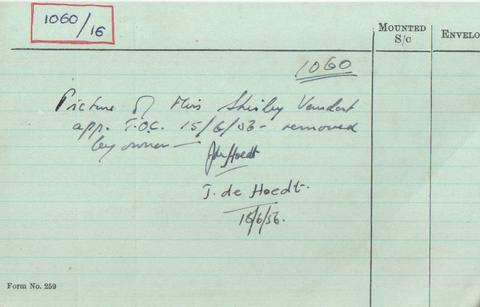 1060/16
MOUNTED
S/C
ENVELO
1060
Picture of Miss Shirley Vandort
app. T.O.C. 15/6/56 - removed
by owner —
J. de Hoedt.
16/6/56.
Form No. 259